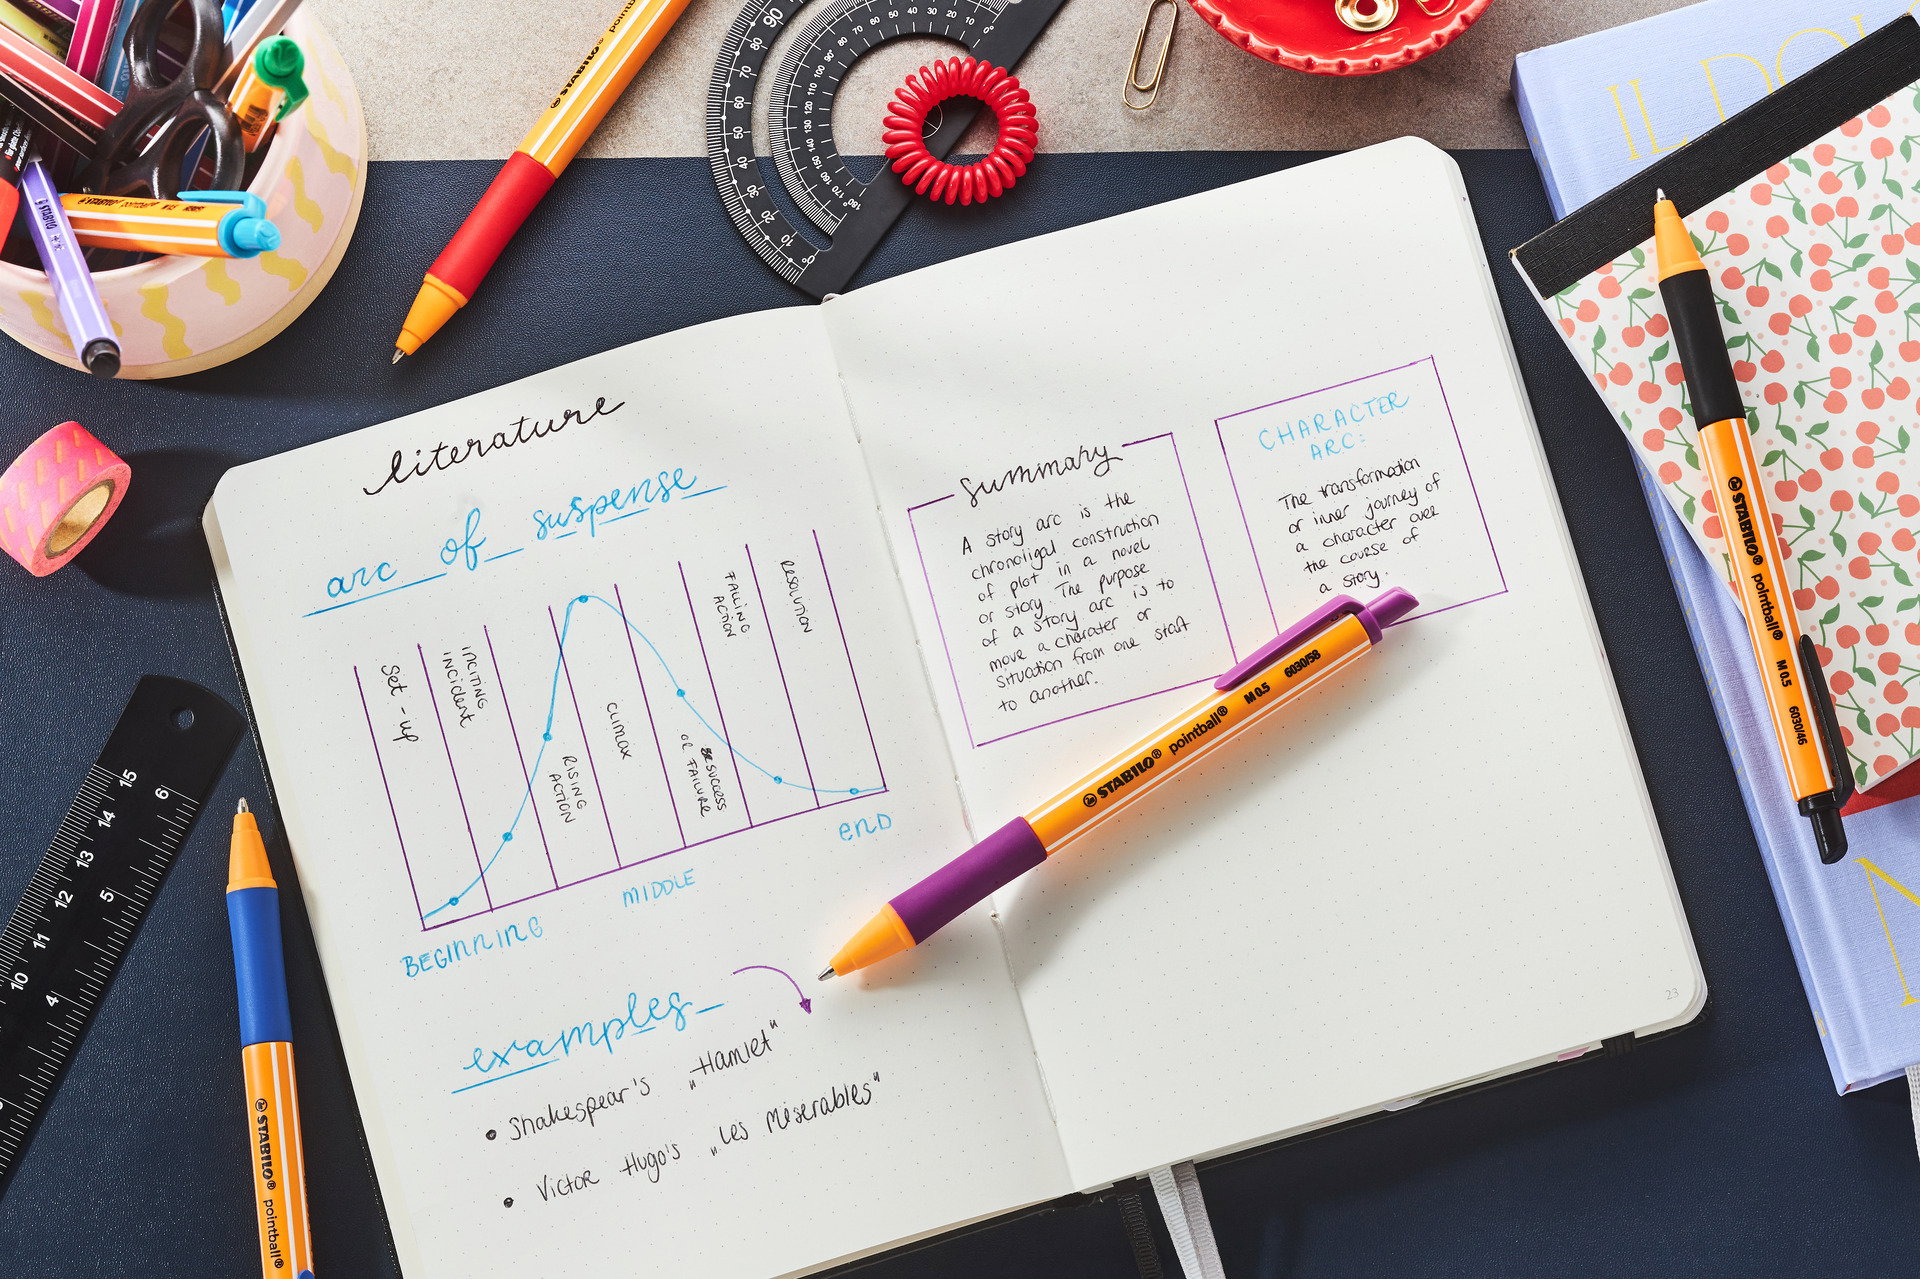 literature
arc of suspense
Set-up
INCITING
INCIDENT
RISING
ACTION
CLIMAX
SUCCESS
OR FAILURE
FALLING
ACTION
RESOLUTION
BEGINNING
MIDDLE
END
examples
• Shakespear's „Hamlet"
• Victor Hugo's „Les Miserables"
summary
A story arc is the
chronoligal construction
of plot in a novel
or story. The purpose
of a story arc is to
move a charater or
situation from one start
to another.
CHARACTER
ARC:
The transformation
or inner journey of
a character over
the course of
a story.
23
STABILO® pointball® M 0.5 6030/58
STABILO® pointball® M 0.5 6030/46
STABILO® pointball®
STABILO® 
STABILO
15
14
13
12
11
10
6
5
4
90
80
70
60
50
40
30
20
10
0°
0°
10
20
30
40
50
60
70
80
90°
100
110
120
130
140
150
160
170
180°